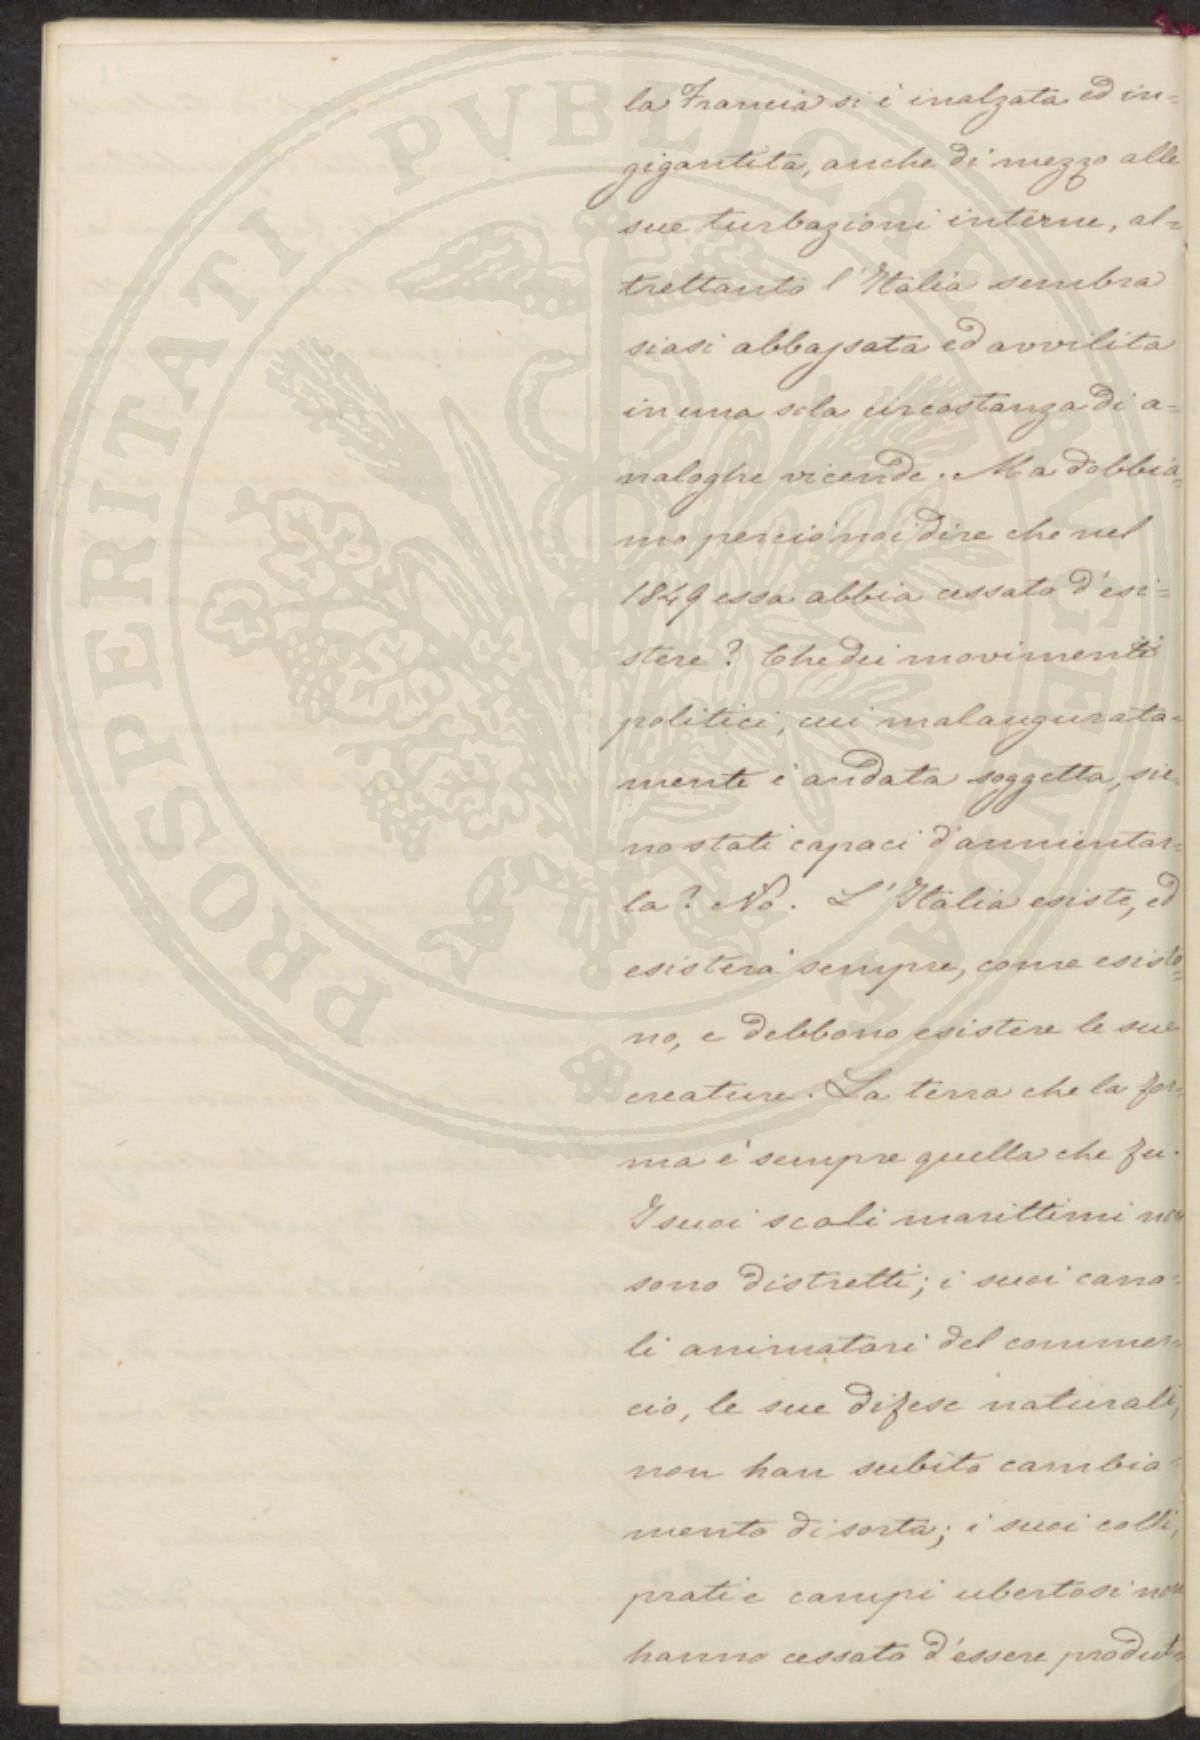 la Francia si è inalzata ed in=
gigantita, anche di mezzo alle
sue turbazioni interne, al=
trettanto l'Italia sembra
siasi abbassata ed avvilita
in una sola circostanza di a=
naloghe vicende. Ma dobbia=
mo perciò noi dire che nel
1849 essa abbia cessato d'esi=
stere? Che dei movimenti
politici, cui malaugurata=
mente è andata soggetta, sie=
no stati capaci d'annientar=
la? No. L'Italia esiste, ed
esisterà sempre, come esisto=
no, e debbono esistere le sue
creature. La terra che la for=
ma è sempre quella che fu.
I suoi scali marittimi non
sono distretti; i suoi cana=
li animatori del commer=
cio, le sue difese naturali,
non han subito cambia=
mento di sorta; i suoi colli,
prati e campi ubertosi non
hanno cessato d'essere produt=
PROSPERITATI PVBLICAE